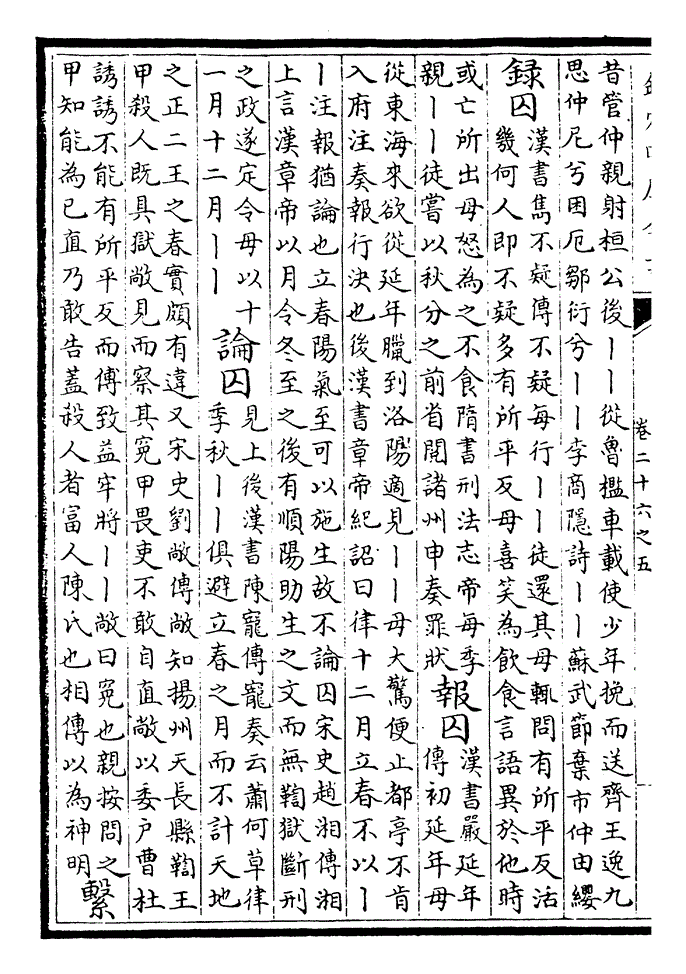 欽定四庫全書
卷二十六之五
昔管仲親射桓公後丨丨從魯檻車載使少年挽而送齊王逸九
思仲尼兮困厄鄒衍兮丨丨李商隱詩丨丨蘇武節棄市仲由纓
録囚
漢書雋不疑傳不疑每行丨丨徒還其母輒問有所平反活
幾何人即不疑多有所平反母喜笑為飲食言語異於他時
或亡所出母怒為之不食隋書刑法志帝每季
親丨丨徒嘗以秋分之前省閱諸州申奏罪狀
報囚
漢書嚴延年
傳初延年母
從東海來欲從延年臘到洛陽適見丨丨母大驚便止都亭不肯
入府注奏報行決也後漢書章帝紀詔曰律十二月立春不以丨
丨注報猶論也立春陽氣至可以施生故不論囚宋史趙湘傳湘
上言漢章帝以月令冬至之後有順陽助生之文而無鞫獄斷刑
之政遂定令毋以十
一月十二月丨丨
論囚
見上後漢書陳寵傳寵奏云蕭何草律
季秋丨丨俱避立春之月而不計天地
之正二王之春實頗有違又宋史劉敞傳敞知揚州天長縣鞫王
甲殺人既具獄敞見而察其冤甲畏吏不敢自直敞以委户曹杜
誘誘不能有所平反而傅致益牢將丨丨敞曰冤也親按問之
甲知能為已直乃敢告蓋殺人者富人陳氏也相傳以為神明
繫